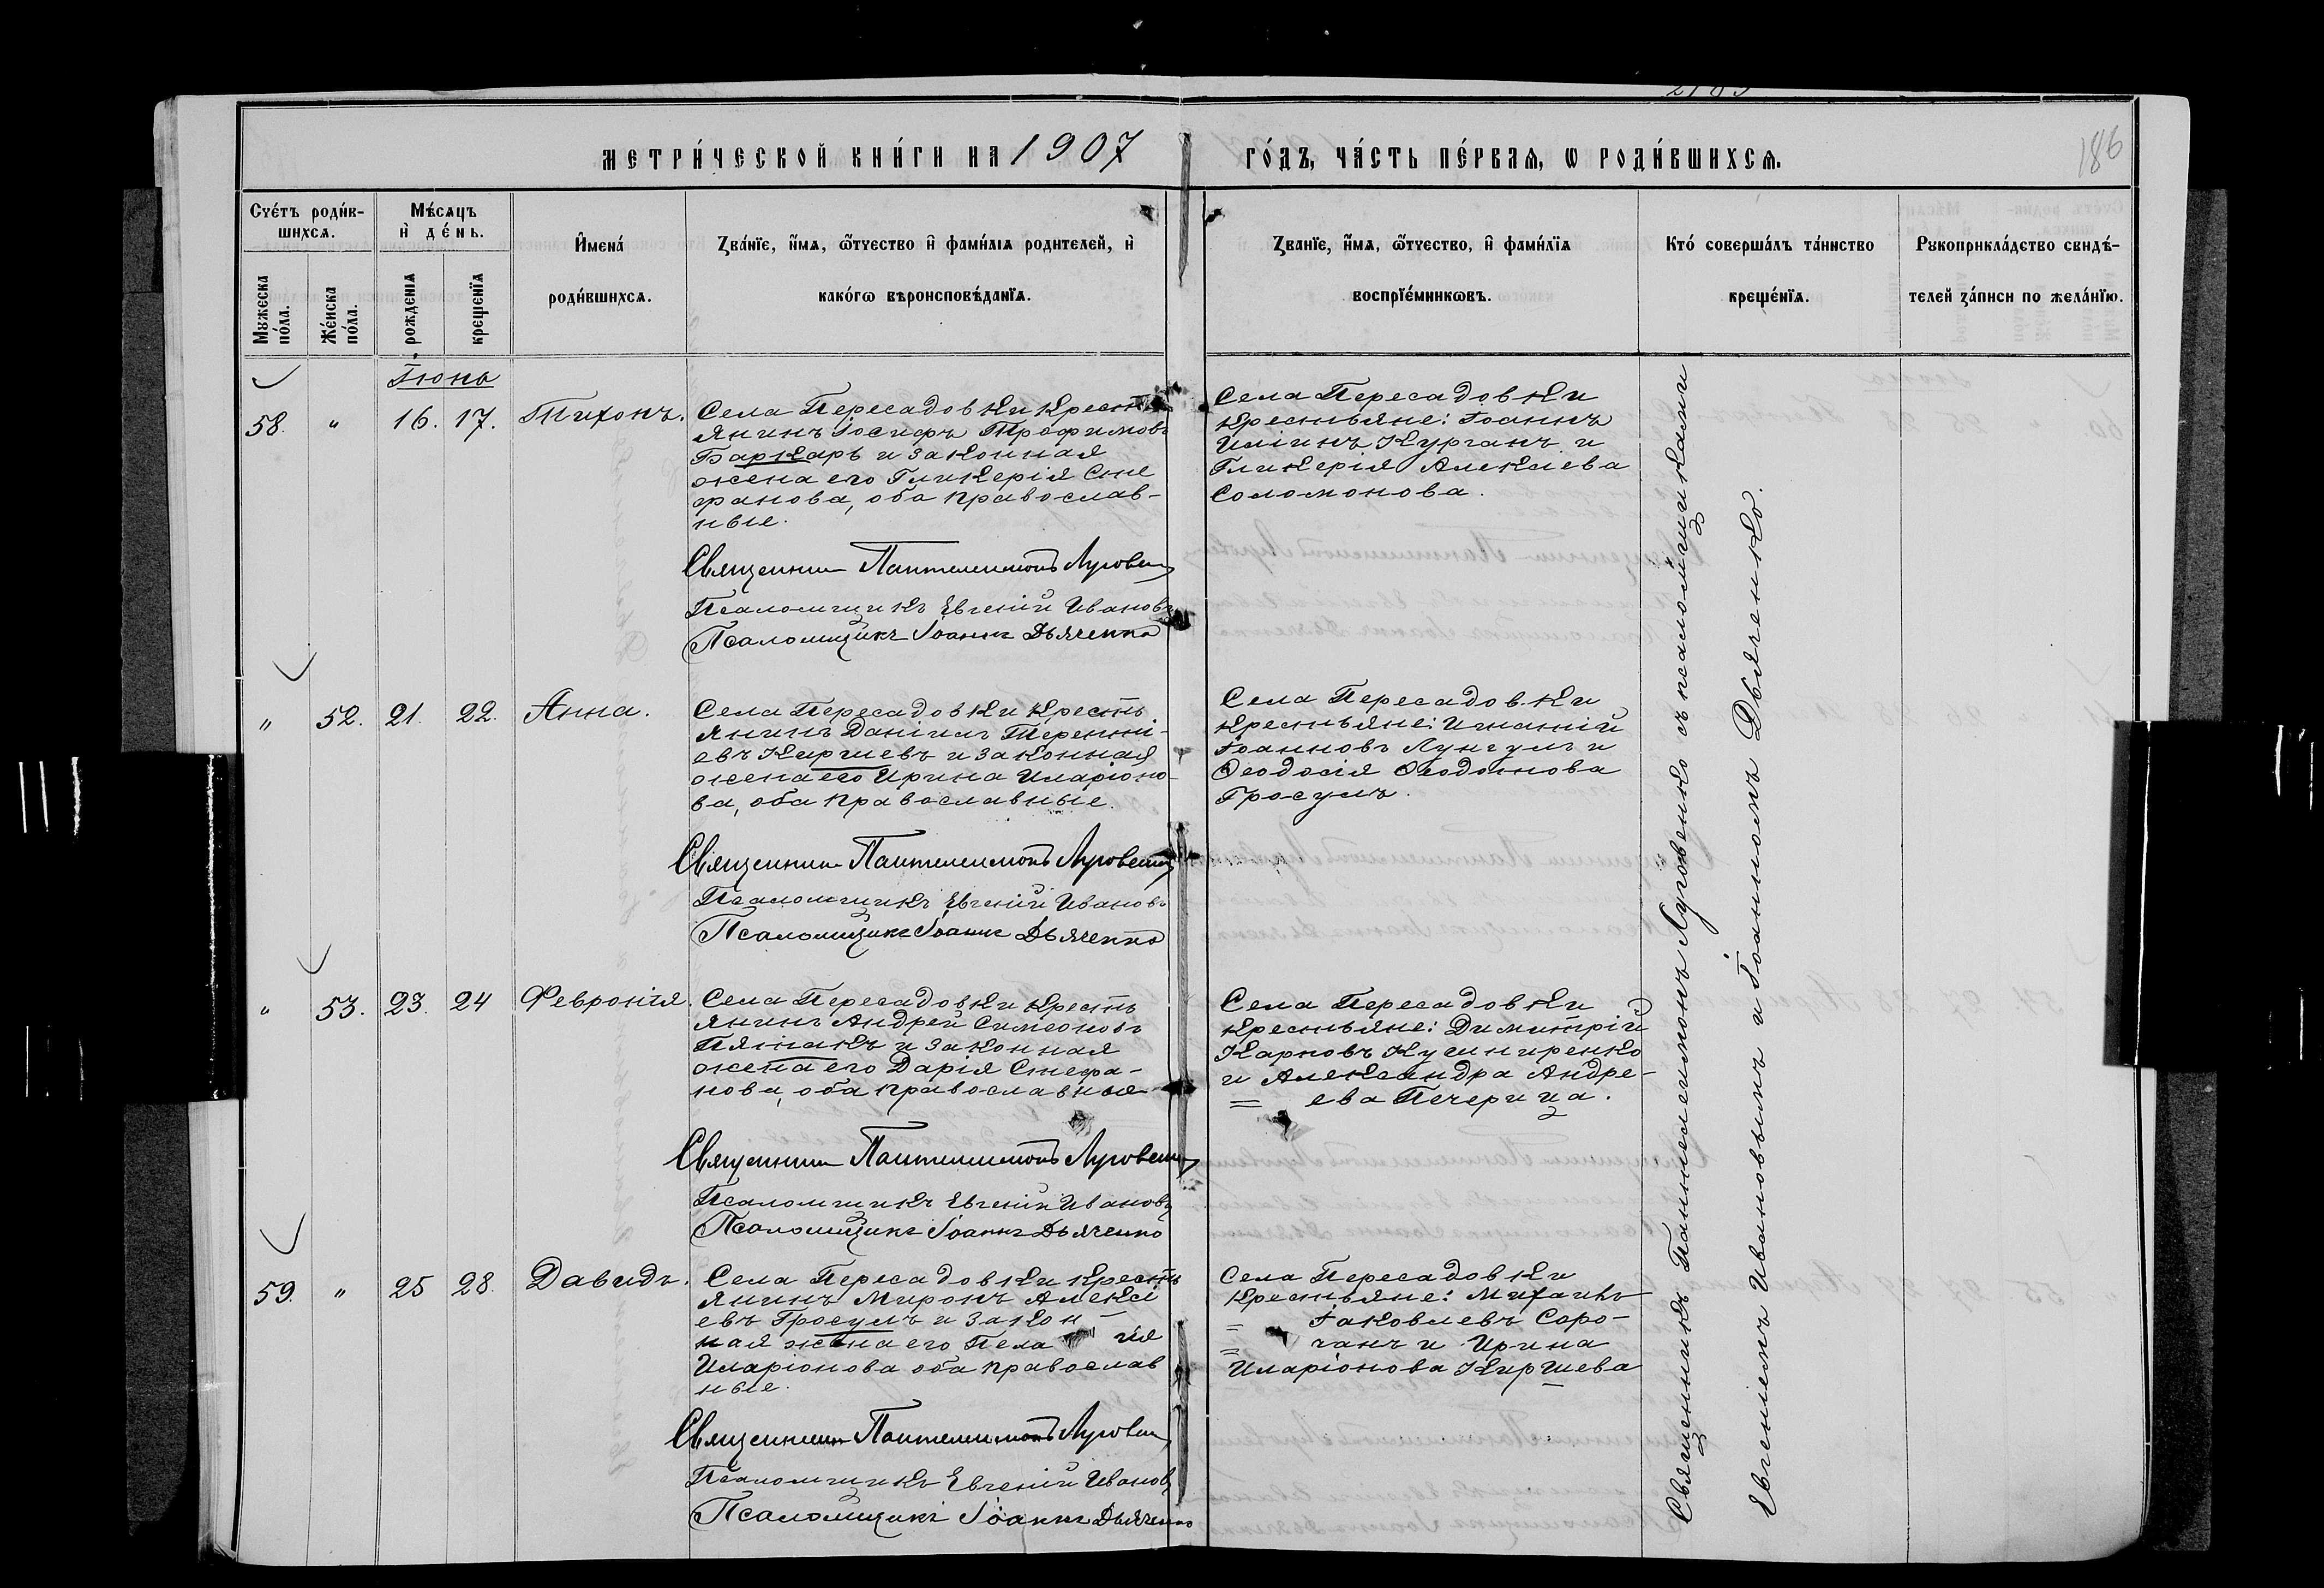 МЕТРИ́ЧЕСКОЙ КНИ́ГИ НА 1907 ГО́ДЪ, ЧА́СТЬ ПЕ́РВАѦ, Ѡ РОДИ́ВШИХСѦ.
186
Сче́тъ роди́в-
шихсѧ.
Мꙋжеска
по́ла.
Же́нска
по́ла.
Мѣ́сѧцъ
и҆ де́нь.
рожденїѧ
крещенїѧ
И҆мена́
роди́вшихсѧ.
Зва́нїе, и҆́мѧ, ѻ҆́тчество и҆ фами́лїѧ родителей, и҆
како́гѡ вѣроисповѣ́данїѧ.
Званїе, и҆́мѧ, ѻ҆́тчество, и҆ фами́лїѧ
воспрїе́мникѡвъ.
Кто́ соверша́лъ та́инство
креще́нїѧ.
Рꙋкоприкла́дство свидѣ́-
телей за́писи по жела́нїю.
Іюнь
58. " 16. 17. Тихонъ.
Села Пересадовки кресть
янинъ Іосифъ Трофимовъ
Баркарь и законная
жена его Гликерія Сте
фанова, оба православ-
ные.
Священник Пантелеимонъ Луговен
Псаломщикъ Евгеній Ивановъ
Псаломщикъ Іоаннъ Дьяченко
Села Пересадовки
крестьяне: Іоаннъ
Иліинъ Курганъ и
Гликерія Алексіева
Соломонова.
" 52. 21. 22. Анна.
Села Пересадовки кресть
янинъ Даніилъ Теренті-
евъ Киршевъ и законная
жена его Ирина Иларіоно-
ва, оба православные.
Священник Пантелеимонъ Луговен
Псаломщикъ Евгеній Ивановъ
Псаломщикъ Іоаннъ Дьяченко
Села Пересадовки
крестьяне: Игнатій
Іоанновъ Лунгулъ и
Ѳеодосія
Гросулъ.
" 53. 23. 24 Февронія.
Села Пересадовки кресть
янинъ Андрей Симеоновъ
Пятакъ и законная
жена его Дарія Стефа-
нова, оба православные
Священник Пантелеимонъ Луговен
Псаломщикъ Евгеній Ивановъ
Псаломщикъ Іоаннъ Дьяченко
Села Пересадовки
крестьяне: Димитрій
Карповъ Кушниренко
и Александра Андре-
= ева Печерица.
59. " 25 28. Давидъ.
Села Пересадовки кресть
янинъ Миронъ Алексі
евъ Гросулъ и закон
ная жена его Пела гія
Иларіонова оба православ
ные.
Священник Пантелеимонъ Луговен
Псаломщикъ Евгеній Ивановъ
Псаломщикъ Іоаннъ Дьяченко
Села Пересадовки
крестьяне: Михаилъ
= Іаковлевъ Соро-
= чанъ и Ирина
Иларіонова Киршева
Священникъ Пантелеимонъ Луговенко съ псаломщиками
Евгеніемъ Ивановымъ и Іоанномъ Дьяченко.